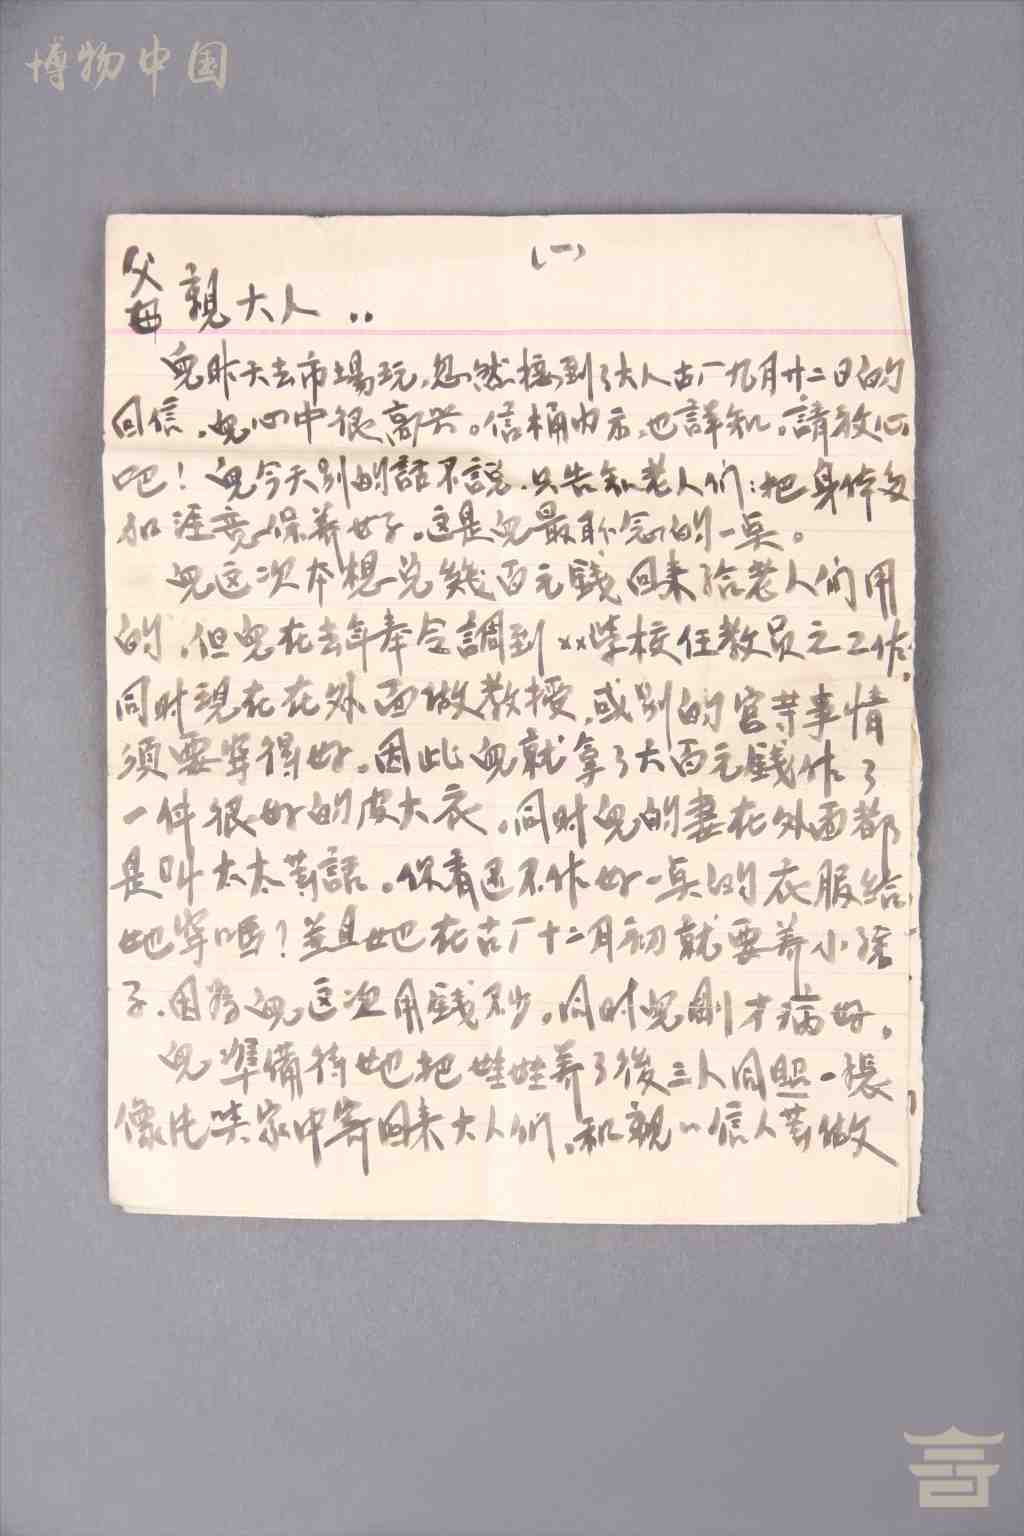 博物中国
(一)
父母親大人：
兒昨天去市場玩，忽然接到了大人古厂九月廿二日的
回信，兒心中很高兴。信桶内示，也詳知。請放心
吧！兒今天别的話不說，只告知老人们：把身体多
加注意保养好了。这是兒最耿念的一点。
兒这次本想兑幾百元錢回来给老人們用
的，但兒在去年奉令調到××学校任教员之工作，
同时現在在外面做教授，或别的官等事情
須要穿得好。因此兒就拿了大百元錢作了
一件很好的皮大衣，同时兒的妻在外面都
是叫太太等話。你看还不作好一点的衣服给
她穿嗎？並且她在古厂十二月初就要养小孩
子，因为兒这次用錢不少，同时兒剛才病好。
兒準備待她把娃娃养了後三人同照一張
像片 家中寄回来大人们，和親 信人等做